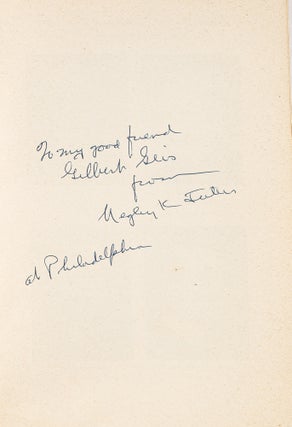 To my good friend
Gilbert Geis
from
Negley K Teeters
at Philadelphia